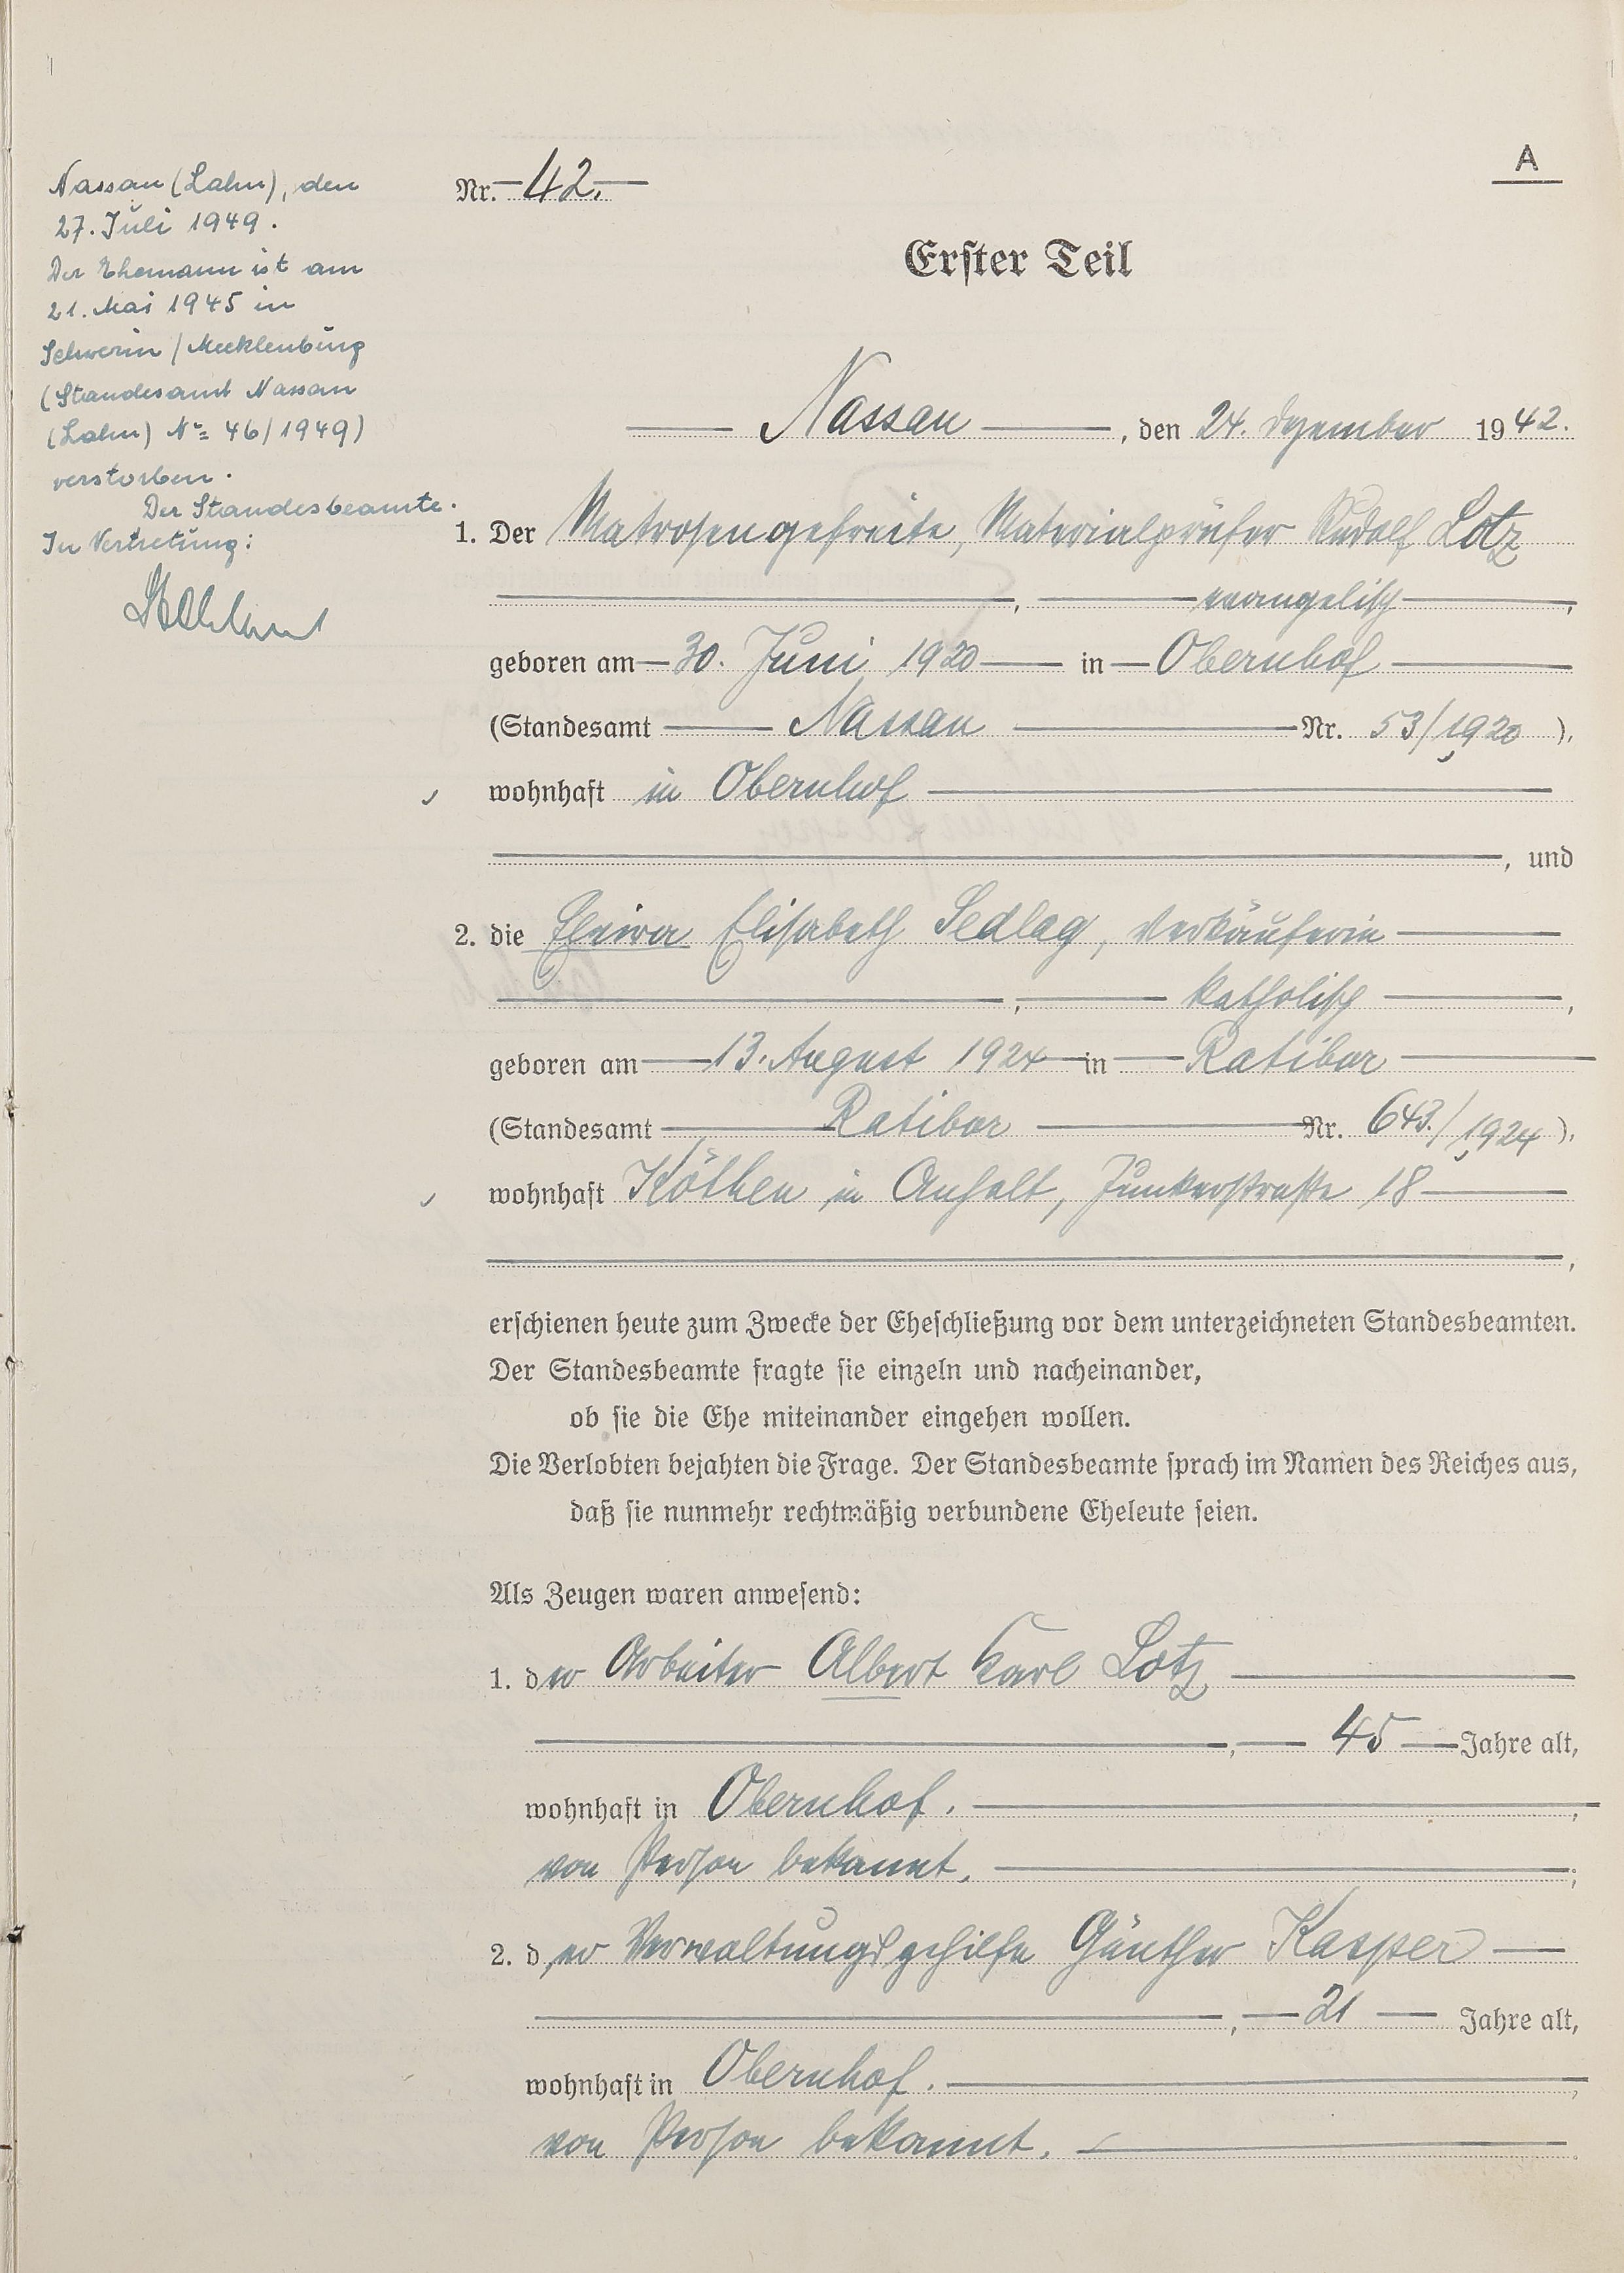 Nassau (Lahn), den
27. Juli 1949.
Der Ehemann ist am
21. Mai 1945 in
Schwerin / Mecklenburg
(Standesamt Nassau
(Lahn) No 46/1949)
verstorben.
Der Standesbeamte.
In Vertretung:
A
Nr. 42.
Erster Teil
Nassau, den 24. Dezember 1942.
1. Der Matrosengefreite, Materialprüfer Rudolf Lotz
, evangelisch,
geboren am 30. Juni 1920 in Obernhof
(Standesamt Nassau Nr. 53/1920),
wohnhaft in Obernhof
, und
2. die Elisabeth Sedlag, Verkäuferin
, katholisch,
geboren am 13. August 1924 in Ratibor
(Standesamt Ratibor Nr. 643./1924),
wohnhaft Köthen in Anhalt, Junkerstraße 18
,
erschienen heute zum Zwecke der Eheschließung vor dem unterzeichneten Standesbeamten.
Der Standesbeamte fragte sie einzeln und nacheinander,
ob sie die Ehe miteinander eingehen wollen.
Die Verlobten bejahten die Frage. Der Standesbeamte sprach im Namen des Reiches aus,
daß sie nunmehr rechtmäßig verbundene Eheleute seien.
Als Zeugen waren anwesend:
1. der Arbeiter Albert Karl Lotz
, 45 Jahre alt,
wohnhaft in Obernhof.,
von Person bekannt.;
2. der Verwaltungsgehilfe Günther Kasper
, 21 Jahre alt,
wohnhaft in Obernhof.,
von Person bekannt.